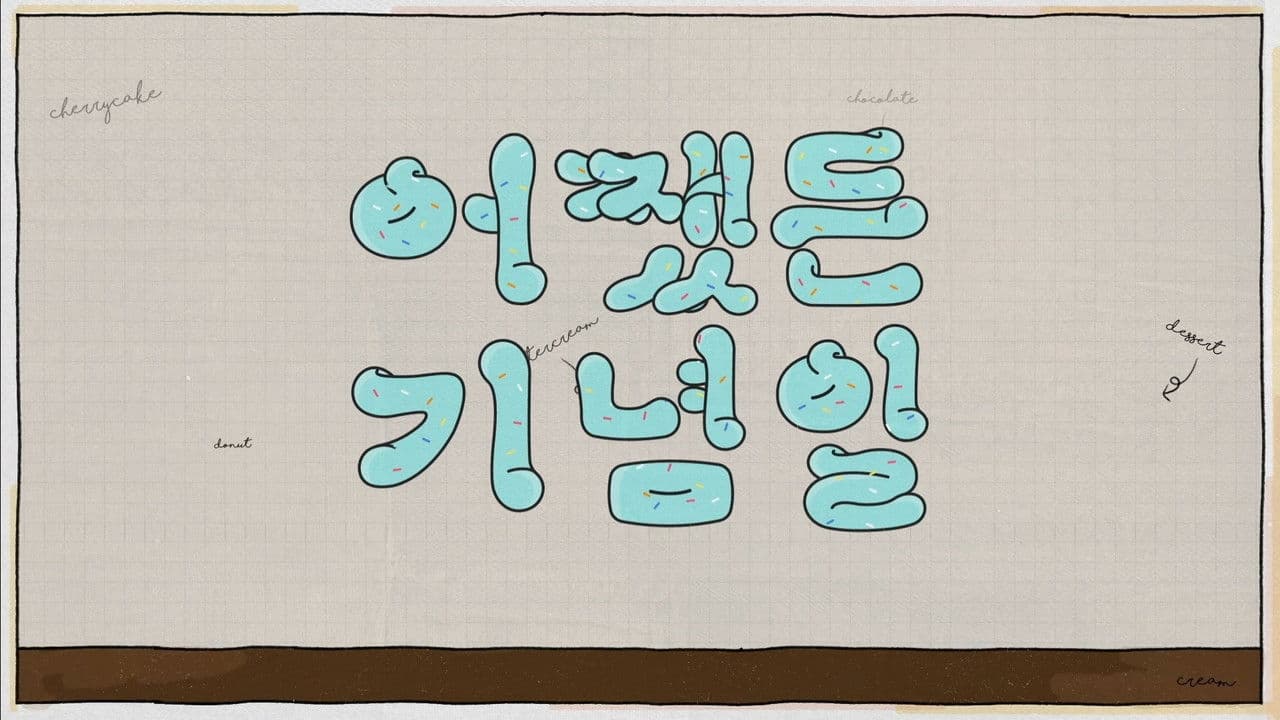 cherrycake
chocolate
어쨌든
tercream
기념일
dessert
donut
cream